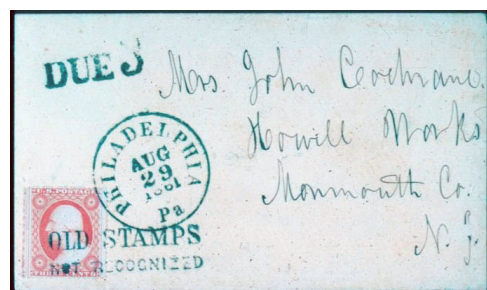 DUE 3
Mrs. John Cochrane.
Howell Works
Monmouth Co.
N. J.
PHILADELPHIA Pa
AUG
29
1861
OLD STAMPS
NOT RECOGNIZED